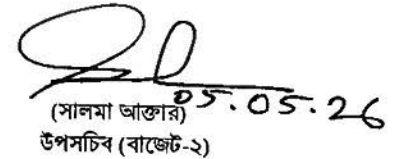 05.05.26
(সালমা আক্তার)
উপসচিব (বাজেট-২)